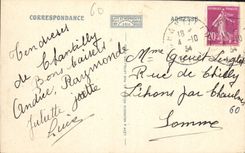 CORRESPONDANCE
60
ADRESSE
Tendresses
de Chantilly
Bons baisers
Andrée Raymonde
Juliette
Mme
Rue de Chilly
Lihons par Chaulnes
60
Somme
18
4-10
34
20c